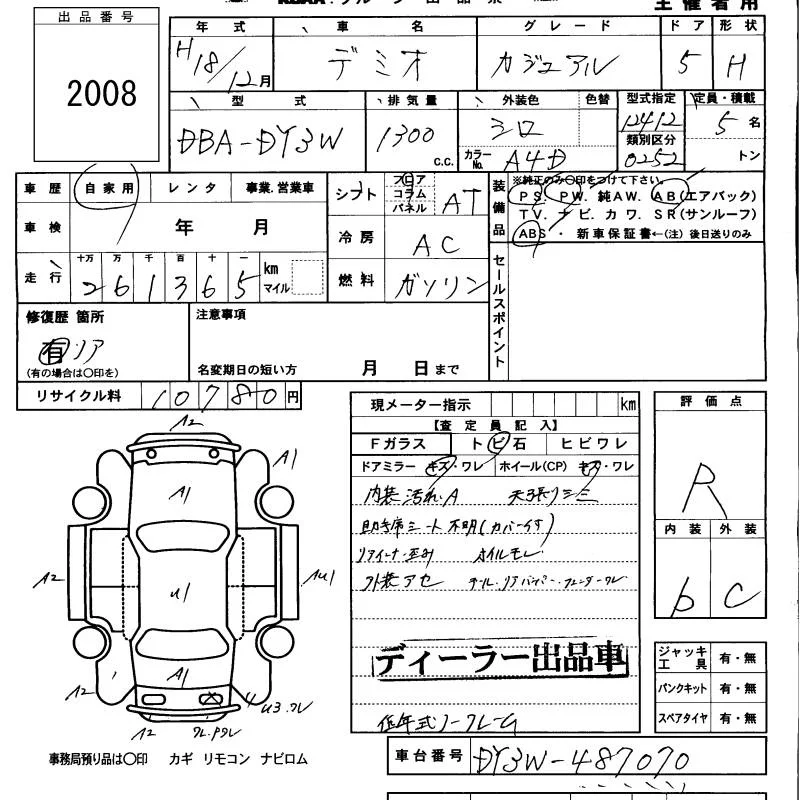 主催者用
出品番号
2008
年式 車名 グレード ドア 形状
H18/12月 デミオ カジュアル 5 H
型式 排気量 外装色 色替 型式指定 定員・積載
DBA-DY3W 1300 c.c. シロ 12412 5名
類別区分
カラーNo. A4D 0252 トン
車歴 自家用 レンタ 事業.営業車
車検 年 月
走行 十万 万 千 百 十 一 km マイル
2 6 1 3 6 5
シフト フロア コラム パネル AT
冷房 AC
燃料 ガソリン
装備品 ※純正のみ〇印をつけて下さい。
PS. PW. 純AW. AB(エアバック)
TV. ナビ. カワ. SR(サンルーフ)
ABS ・ 新車保証書←(注) 後日送りのみ
セールスポイント
修復歴 箇所
有 リア
(有の場合は〇印を)
注意事項
名変期日の短い方 月 日まで
リサイクル料 10780円
現メーター指示 km
【査定員記入】
Fガラス トビ石 ヒビワレ
ドアミラー キズ・ワレ ホイール(CP) キズ・ワレ
内装汚れ A 天張りシミ
助手席シート不明(カバー付)
リアイナー歪み オイルモレ
外装アセ テール.リアバンパー.フェンダーワレ
ディーラー出品車
低年式ノークレーム
評価点
R
内装 外装
b C
ジャッキ工具 有・無
パンクキット 有・無
スペアタイヤ 有・無
A2
A1
A1
A2
U1
AU1
A2
A1
U3.ワレ
A2
事務局預り品は〇印 カギ リモコン ナビロム
車台番号 DY3W-487070